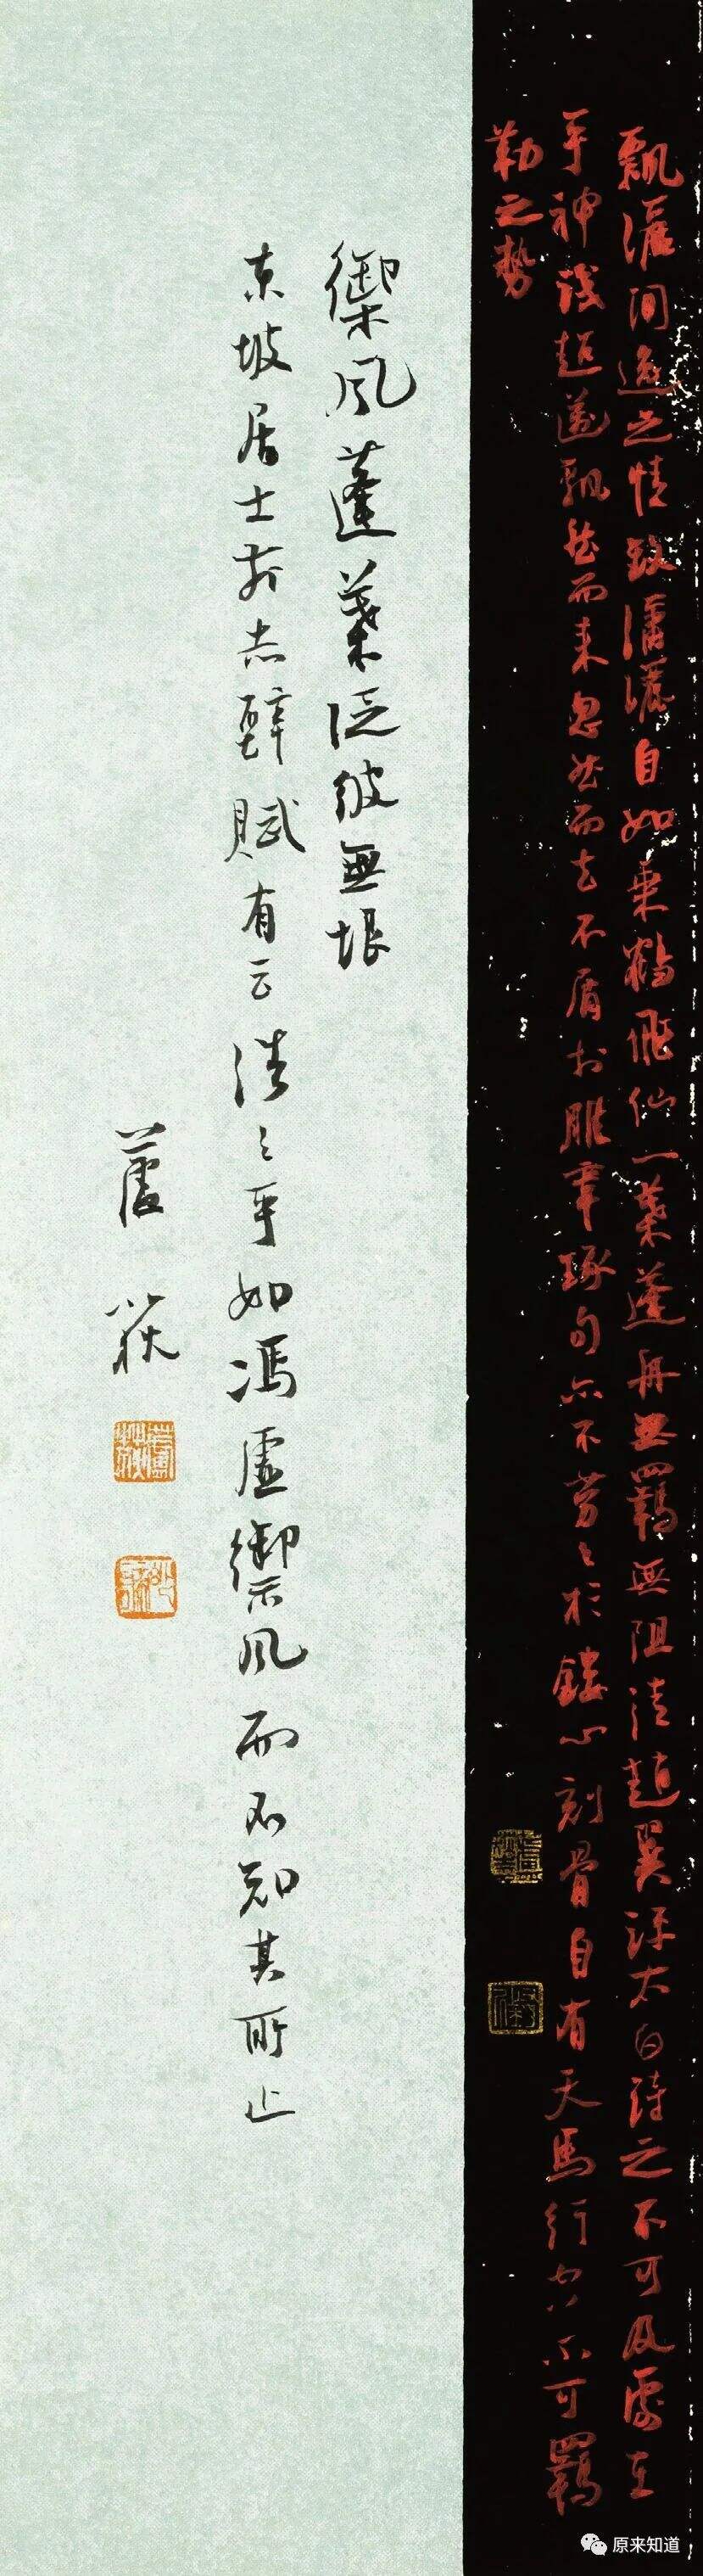 飄灑閒逸之情致瀟灑自如乘鶴飛仙一葉蓬舟無羈無阻清趙翼評太白詩之不可及處在
乎神識超邁飄然而來忽然而去不屑於雕章琢句亦不勞々於鏤心刻骨自有天馬行空不可羈
勒之勢
禦風蓬葉泛彼無垠
東坡居士前赤壁賦有云浩々乎如馮虛禦風而不知其所止
蘆荻
原来知道